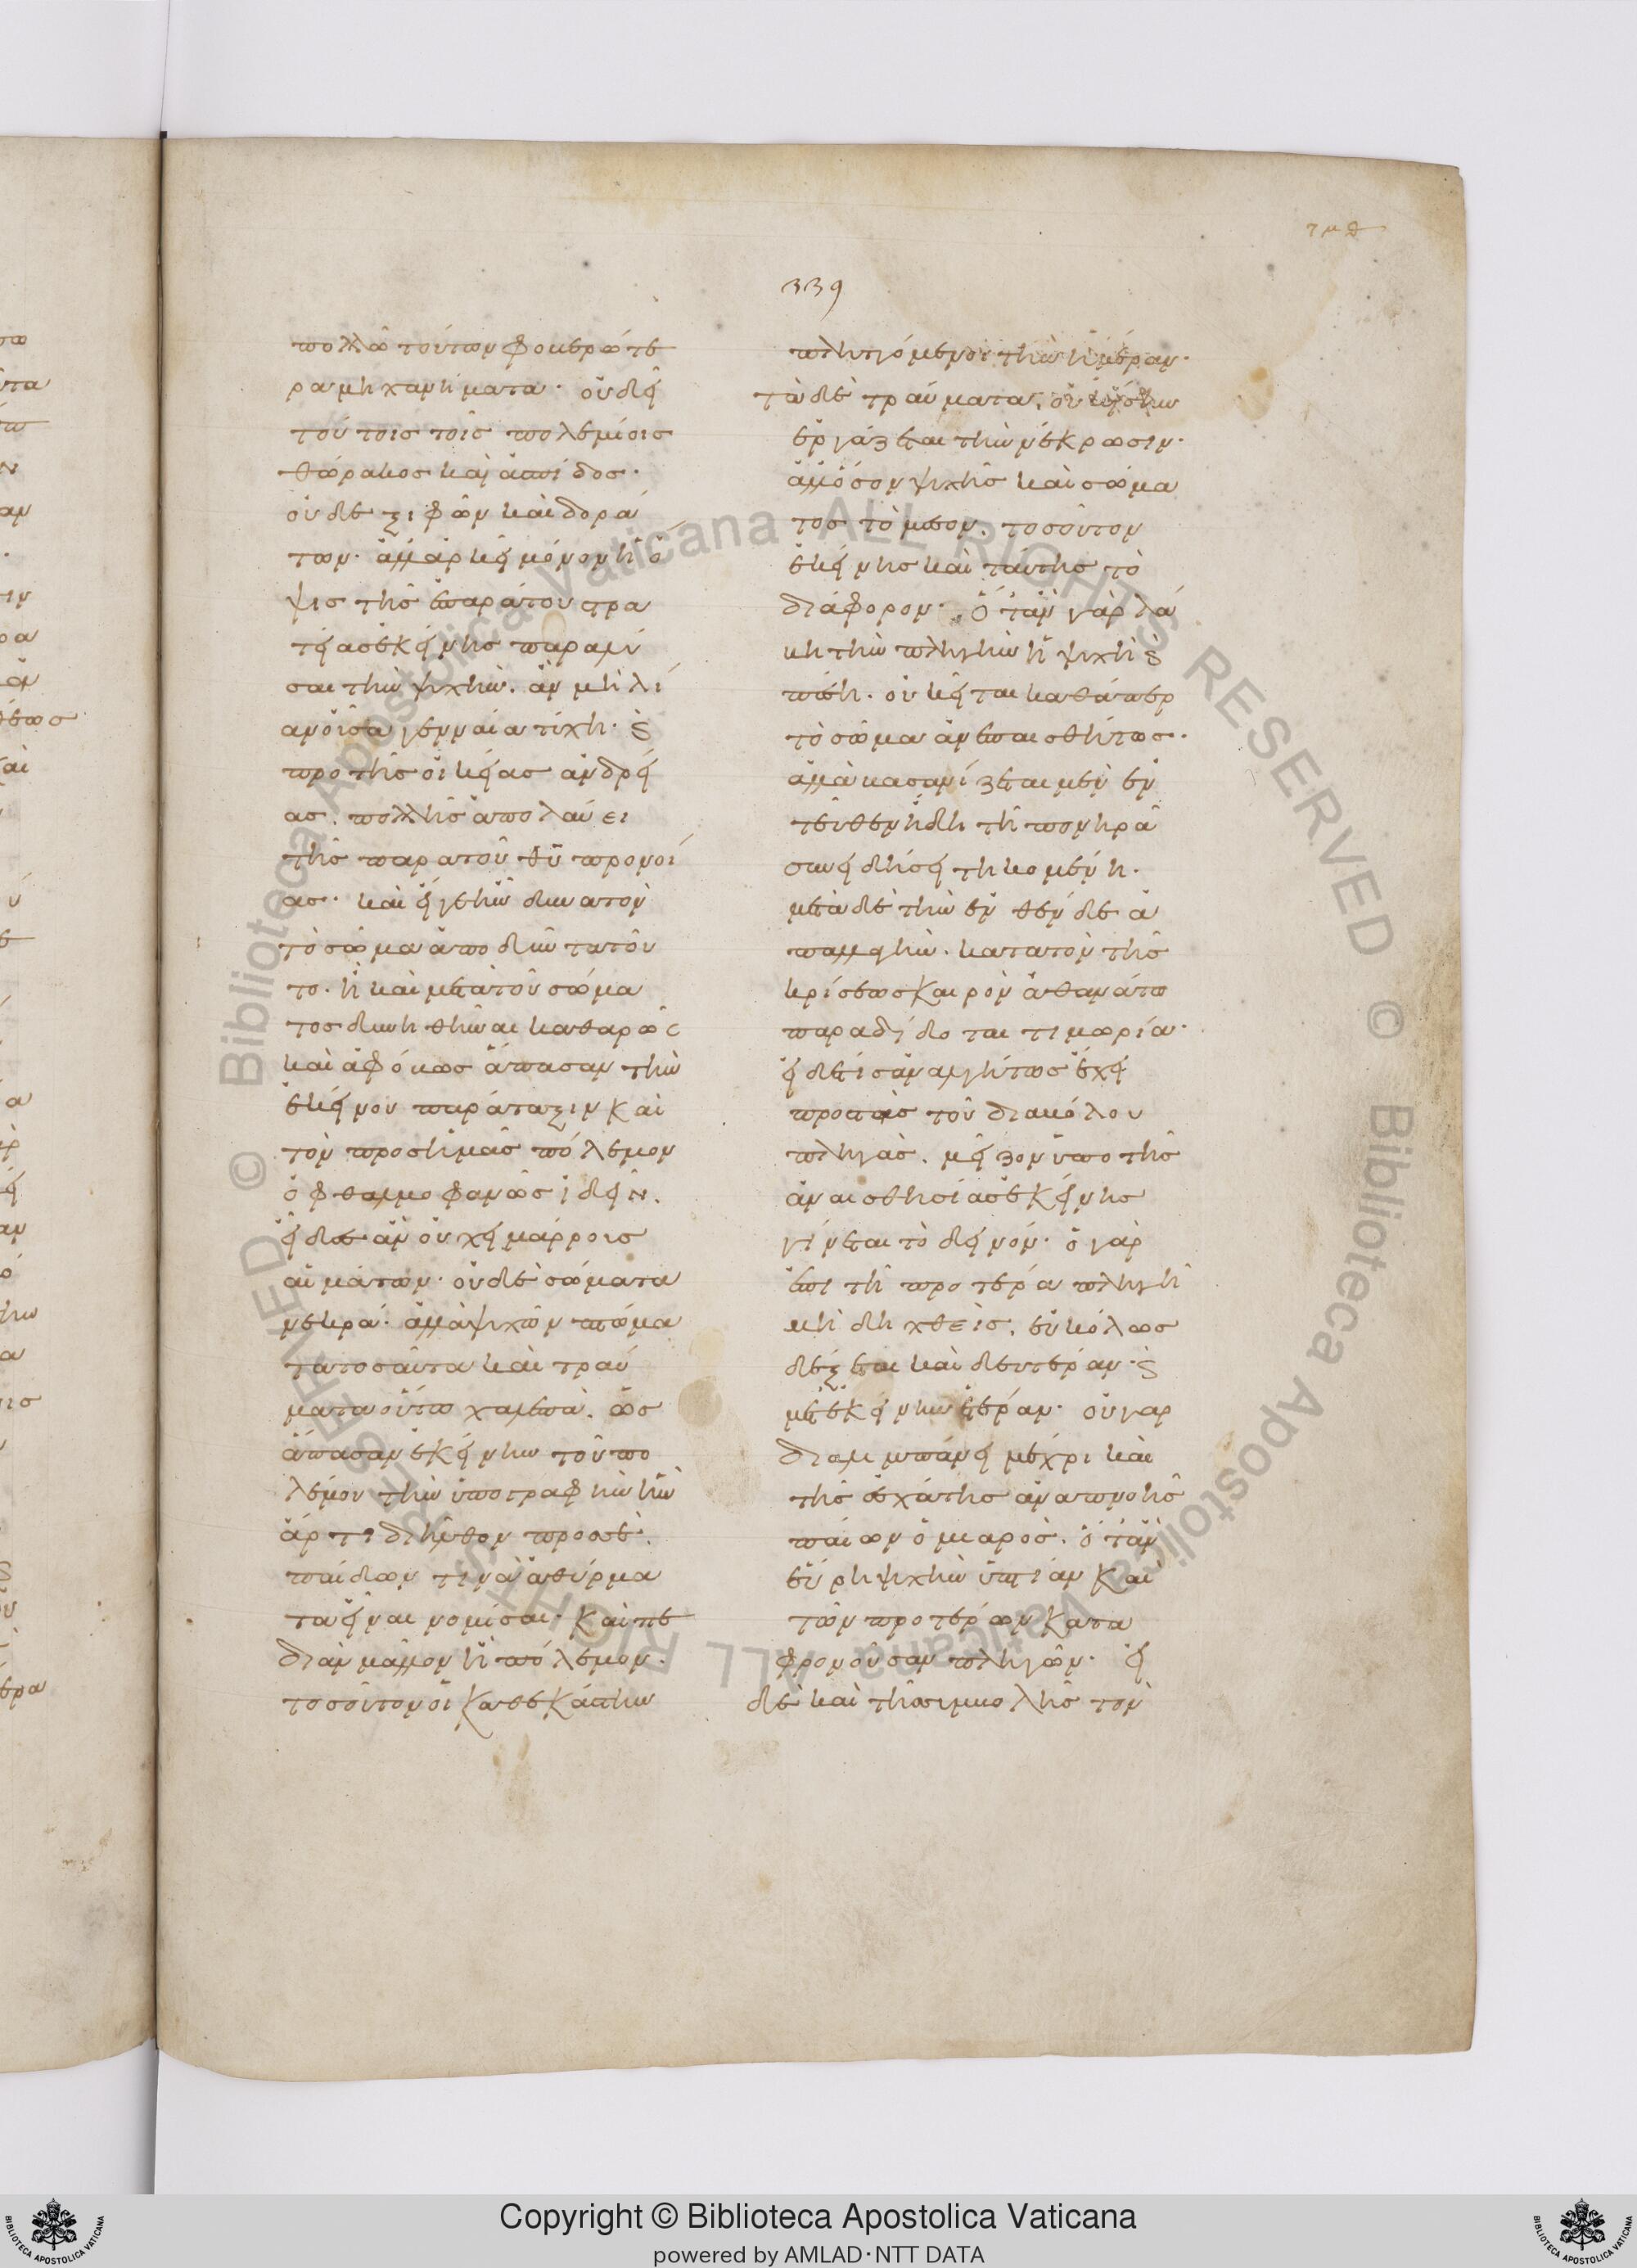 339
πολλῶ τούτων φοβερώτε
ρα μηχανήματα· οὐ δεῖ
τούτοις τοῖς πολεμίοις
θώρακος καὶ ἀσπίδος·
οὐδε ξιφῶν καὶ δορά
των· ἀλλ ἀρκεῖ μόνον ἡ ὄ
ψις τῆς ἐπαράτου στρα
τείας ἐκείνης παραλύ
σαι τὴν ψυχὴν. ἂν μὴ λί
αν οὖσα γενναία τύχη· ϗ
προ τῆς οἰκείας ἀνδρεί
ας. πολλῆς ἀπολαύει
τῆς παρα τοῦ θῦ προνοί
ας· καὶ εἴγε ἦν δυνατὸν
τὸ σῶμα ἀποδύντα τοῦ
το· ἢ καὶ μετὰ τοῦ σώμα
τος δυνηθῆναι καθαρῶς
καὶ ἀφόβως ἅπασαν τὴν
ἐκείνου παράταξιν καὶ
τὸν προσ ἡμᾶς πόλεμον
ὀφθαλμοφανῶς ἰδεῖν.
εἶδες ἂν οὐ χειμάρροις
αἱμάτων· οὐδὲ σώματα
νεκρά· ἀλλὰ ψυχῶν πτώμα
τα τοσαῦτα καὶ τραύ
ματα οὕτω χαλεπὰ. ὡς
ἅπασαν ἐκείνην τοῦ πο
λέμου τὴν ὑπογραφὴν ἣν
ἄρτι διῆλθον προς σὲ.
παίδων τινὰ ἀθύρμα
τα εἶναι νομίσαι· καὶ πε
διὰν μᾶλλον ἢ πόλεμον·
τοσοῦτον οἱ καθ εκάστην
πληττόμενοι τὴν ἡμέραν·
τὰ δὲ τραύματα. οὐκ ἴσην
ἐργάζεται τὴν νέκρωσιν·
ἀλλ ὅσον ψυχῆς καὶ σώμα
τος τὸ μέσον. τοσοῦτον
ἐκείνης καὶ ταύτης τὸ
διάφορον· ὅταν γὰρ λά
βη τὴν πληγὴν ἡ ψυχὴ ϗ
πέση. οὐ κεῖται καθάπερ
τὸ σῶμα ἀνεπαισθήτως·
ἀλλὰ βασανίζεται μὲν ἐν
τεῦθεν ἤδη τῆ πονηρᾶ
συνειδήσει τηκομένη.
μετὰ δὲ τὴν ἐνθένδε ἀ
παλλαγὴν. κατα τὸν τῆς
κρίσεως καιρὸν ἀθανάτω
παραδίδοται τιμωρία·
εἰ δέ τις ἀναλγήτως ἔχει
προς τὰς τοῦ διαβόλου
πληγὰς. μεῖζον ὑπο τῆς
ἀναισθησίας ἐκείνης
γίνεται τὸ δεινόν· ὁ γὰρ
ἐπι τῆ προτέρα πληγῆ
μὴ δηχθεὶς. εὐκόλως
δέξεται καὶ δευτέραν· ϗ
μετ ἐκείνην ἑτέραν· οὐ γαρ
διαλιμπάνει μέχρι καὶ
τῆς ἐσχάτης ἀναπνοῆς
παίων ὁ μιαρὸς. ὅταν
εὕρη ψυχὴν ὑπτίαν καὶ
τῶν προτέρων κατα
φρονοῦσαν πληγῶν· εἰ
δὲ καὶ τῆς συμβολῆς τὸν